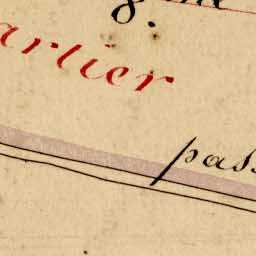 8.
artier
pass